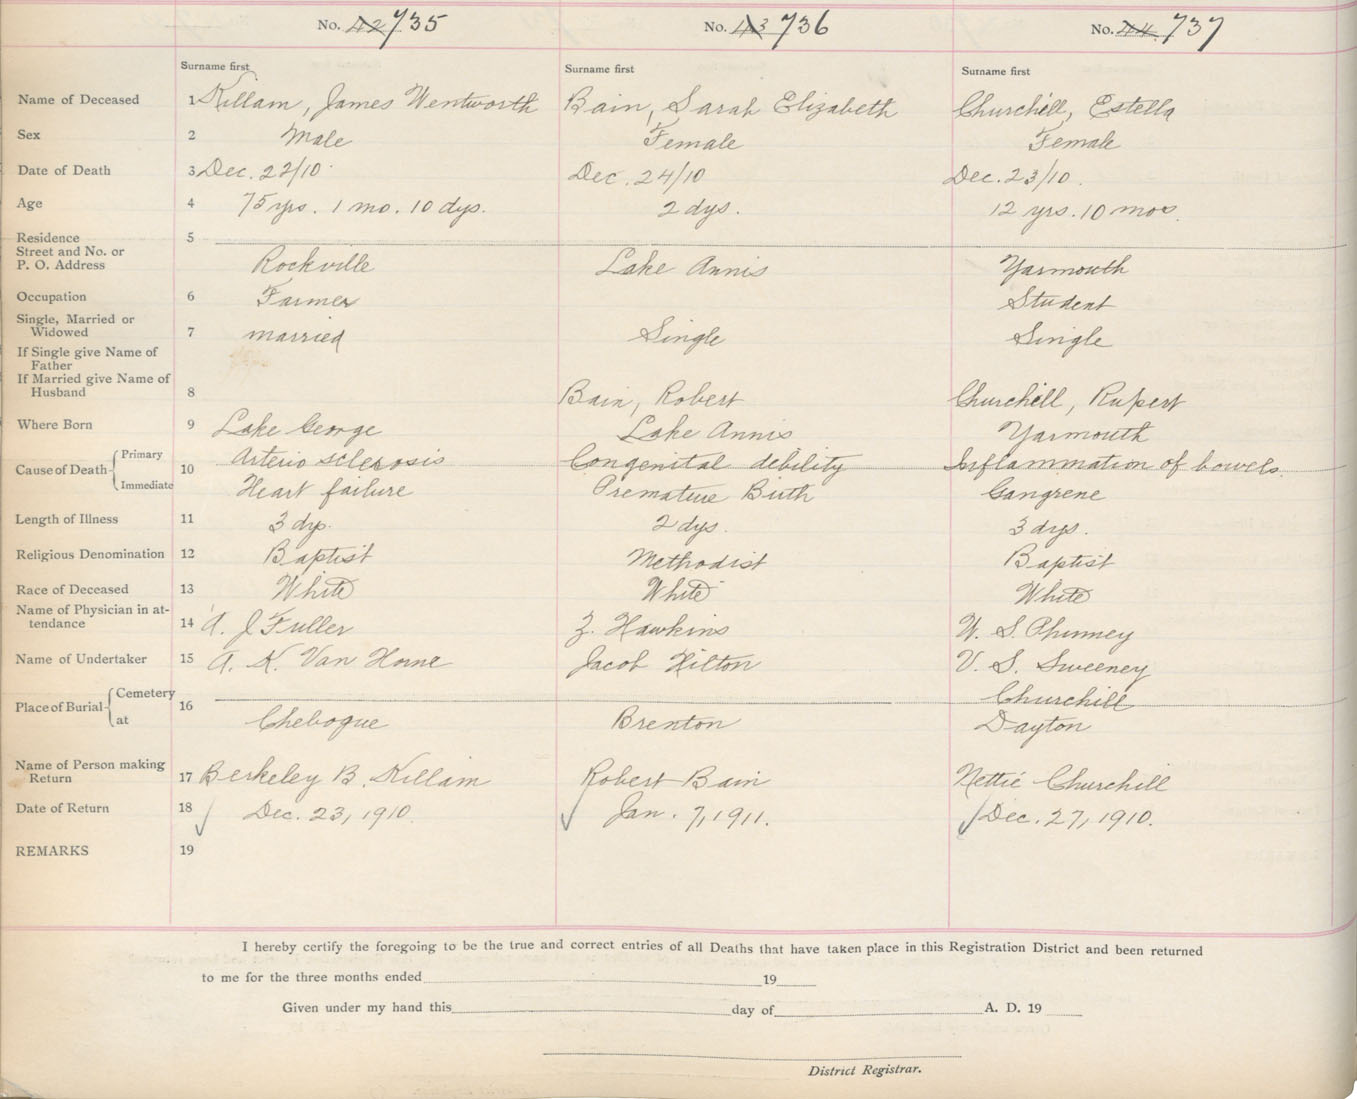 No. 42 735 No. 43 736 No. 44 737
Surname first Surname first Surname first
Name of Deceased 1 Killam, James Wentworth Bain, Sarah Elizabeth Churchill, Estella
Sex 2 Male Female Female
Date of Death 3 Dec. 22/10 Dec. 24/10 Dec. 23/10.
Age 4 75 yrs. 1 mo. 10 dys. 2 dys. 12 yrs. 10 mos.
Residence 5
Street and No. or
P. O. Address Rockville Lake Annis Yarmouth
Occupation 6 Farmer Student
Single, Married or
Widowed 7 married Single Single
If Single give Name of
Father
If Married give Name of
Husband 8 Bain, Robert Churchill, Rupert
Where Born 9 Lake George Lake Annis Yarmouth
Cause of Death 10 Primary Arterio sclerosis Congenital debility Inflammation of bowels.
Immediate Heart failure Premature Birth Gangrene
Length of Illness 11 3 dys. 2 dys. 3 dys.
Religious Denomination 12 Baptist Methodist Baptist
Race of Deceased 13 White White White
Name of Physician in at-
tendance 14 A. J Fuller Z. Hawkins W. S. Phinney
Name of Undertaker 15 A. K. Van Horne Jacob Hilton V. S. Sweeney
Place of Burial 16 Cemetery Churchill
at Chebogue Brenton Dayton
Name of Person making
Return 17 Berkeley B. Killam Robert Bain Nettie Churchill
Date of Return 18 Dec. 23, 1910. Jan. 7, 1911. Dec. 27, 1910.
REMARKS 19
I hereby certify the foregoing to be the true and correct entries of all Deaths that have taken place in this Registration District and been returned
to me for the three months ended 19
Given under my hand this day of A. D. 19
District Registrar.